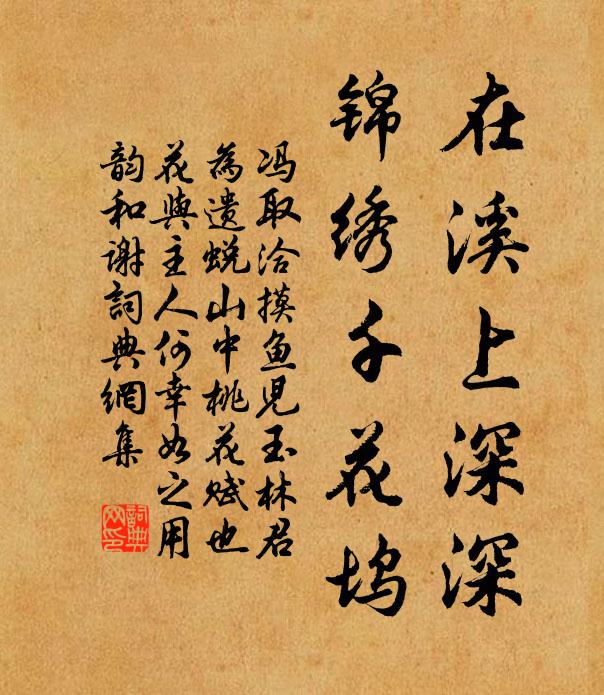 在溪上深深
锦绣千花坞
冯取洽摸鱼儿玉林君
為遗蜕山中桃花赋也
花與主人何幸如之用
韵和谢詞典網集
詞典網印